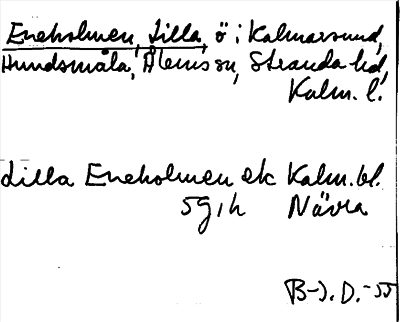 Eneholmen, Lilla, ö i Kalmarsund,
Hundsmåla, Ålems sn, Stranda hd,
Kalm. l.
Lilla Eneholmen ek Kalm. bl.
5g,h Nävra
B-J. D.-55